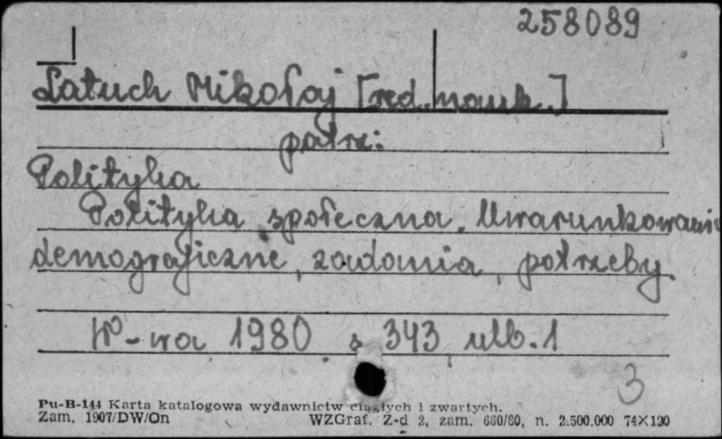 258089
Latuch Mikołaj [red. nauk.]
patrz:
Polityka
Polityka społeczna. Uwarunkowania
demograficzne, zadania, potrzeby.
W-wa 1980 s. 343, nlb. 1
3
Pu-B-144 Karta katalogowa wydawnictw ciągłych i zwartych.
Zam. 1907/DW/On WZGraf. Z-d 2, zam. 660/80, n. 2.500.000 74×120